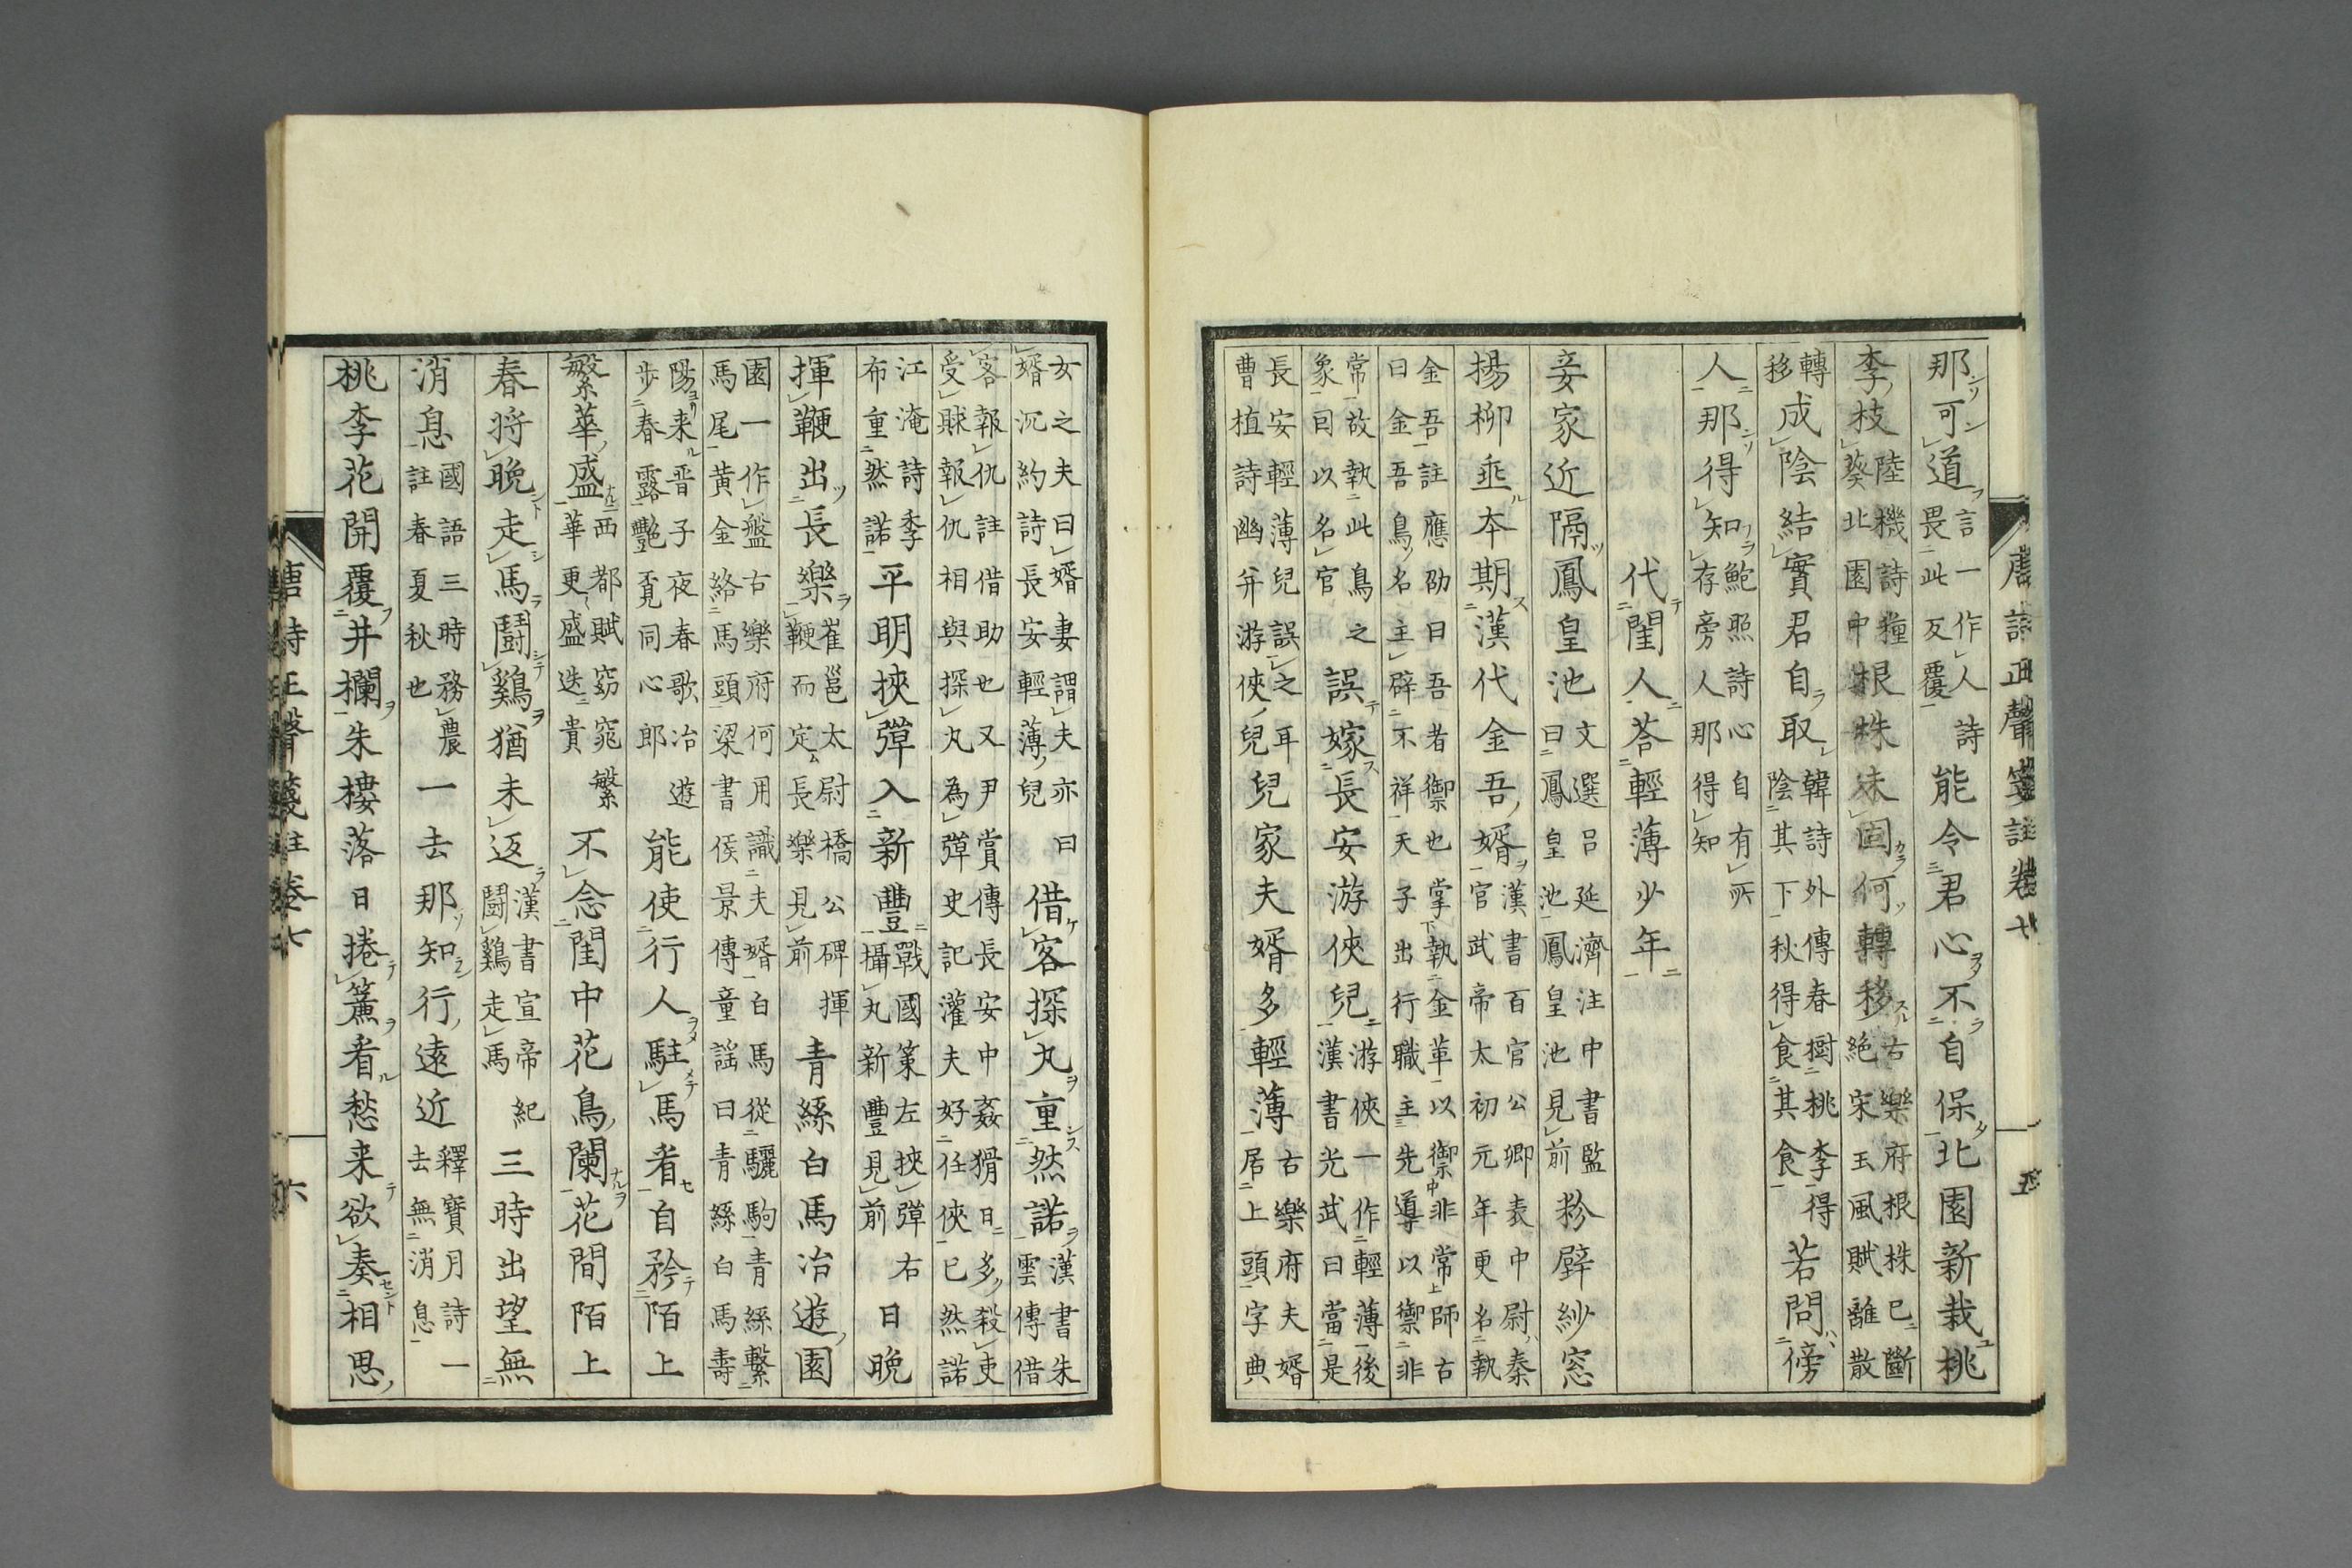 唐詩正聲箋註卷七 五
那可道言一作人詩畏此反覆能令君心不自保北園新栽桃
李枝陸機詩種葵北園中根株未固何轉移古樂府根株已斷絕宋玉風賦離散
轉移成陰結實君自取韓詩外傳春樹桃李得陰其下秋得食其食若問傍
人那得知鮑照詩心自有所存旁人那得知
代閨人荅輕薄少年
妾家近隔鳳皇池文選呂延濟注中書監曰鳳皇池鳳皇池見前粉壁紗窓
楊柳垂本期漢代金吾婿漢書百官公卿表中尉秦官武帝太初元年更名執
金吾註應劭曰吾者禦也掌執金革以禦非常師古曰金吾鳥名主辟不祥天子出行職主先導以禦非
常故執此鳥之象囙以名官誤嫁長安游俠兒游俠一作輕薄後漢書光武曰當是
長安輕薄兒誤之耳曹植詩幽并游俠兒兒家夫婿多輕薄古樂府夫婿居上頭字典
女之夫曰婿妻謂夫亦曰婿沉約詩長安輕薄兒借客探丸重然諾漢書朱雲傳借
客報仇註借助也又尹賞傳長安中姦猾日多殺吏受賕報仇相與探丸為彈史記灌夫好任俠已然諾
江淹詩季布重然諾平明挾彈入新豐戰國策左挾彈右攝丸新豐見前日晚
揮鞭出長樂崔邕太尉橋公碑揮鞭而定長樂見前青絲白馬冶遊園
園一作盤古樂府何用識夫婿白馬從驪駒青絲繫馬尾黃金絡馬頭梁書侯景傳童謠曰青絲白馬壽
陽来晋子夜春歌冶遊步春露艷覓同心郎能使行人駐馬看自矜陌上
繁華盛西都賦窈窕繁華更盛迭貴不念閨中花鳥闌花間陌上
春将晚走馬鬪鷄猶未返漢書宣帝紀鬪鷄走馬三時出望無
消息國語三時務農註春夏秋也一去那知行遠近釋寶月詩一去無消息
桃李花開覆井欄朱樓落日捲簾看愁来欲奏相思
唐詩正聲箋註卷七 六